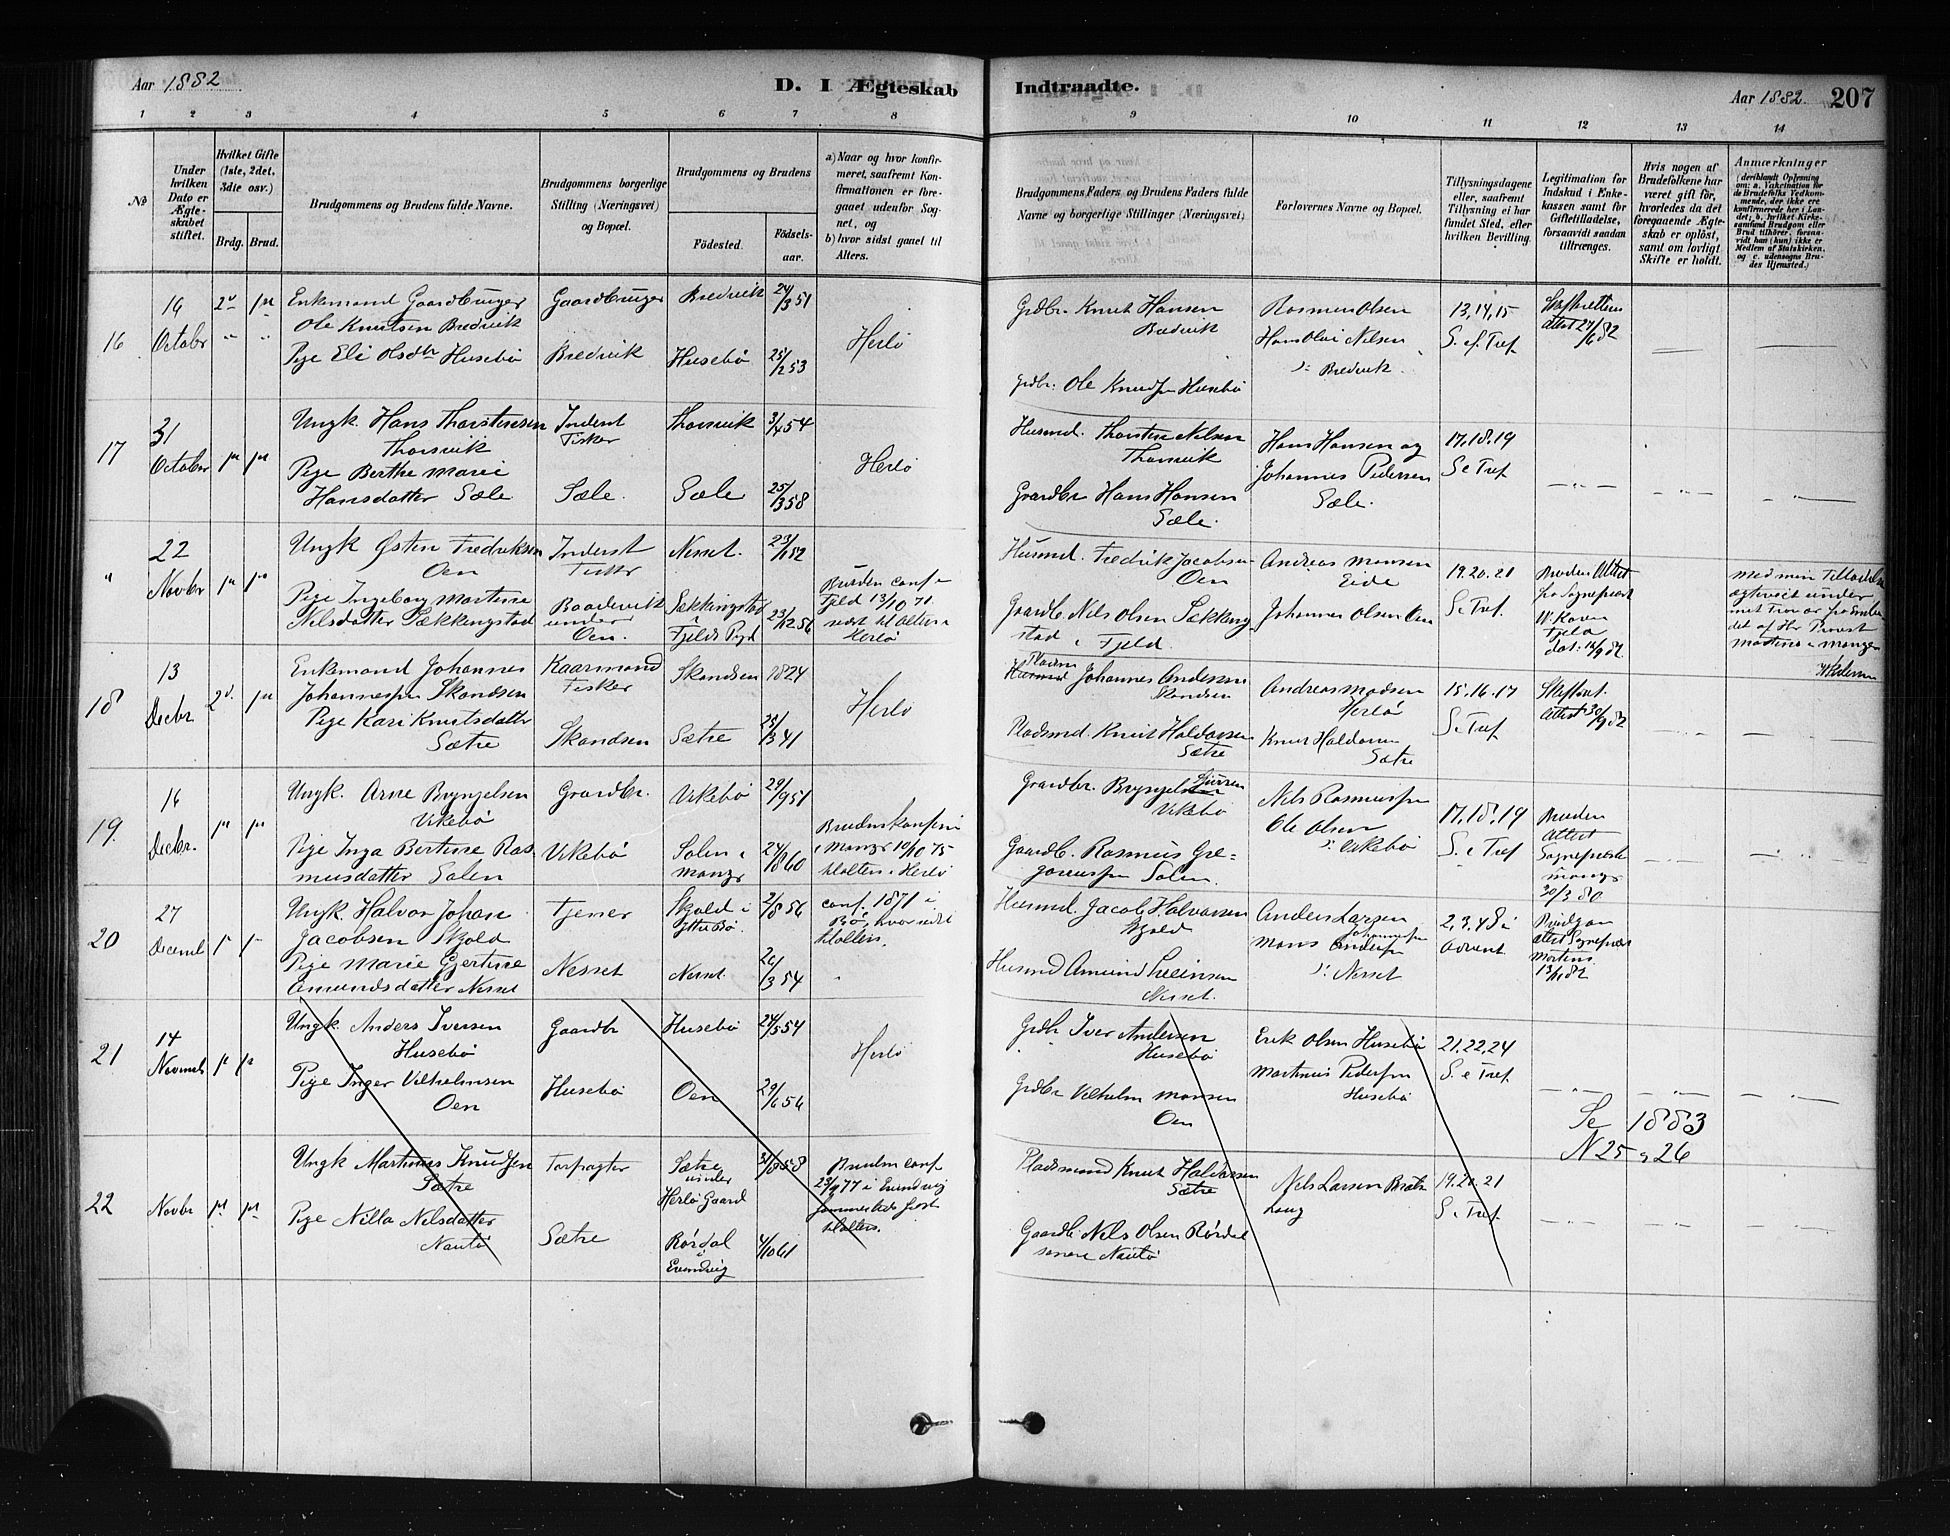 Aar 1882
D. I Ægteskab
Indtraadte.
Aar 1882
207
1 2 3 4 5 6 7 8 9 10 11 12 13 14
No
Under hvilken Dato er Ægteskabet stiftet.
Hvilket Gifte (1ste, 2det, 3die osv.)
Brdg. Brud.
Brudgommens og Brudens fulde Navne.
Brudgommens borgerlige Stilling (Næringsvei) og Bopæl.
Brudgommens og Brudens
Födested.
Födselsaar.
a) Naar og hvor konfirmeret, saafremt Konfirmationen er foregaaet udenfor Sognet, og
b) hvor sidst gaaet til Alters.
Brudgommens Faders og Brudens Faders fulde Navne og borgerlige Stillinger (Næringsvei)
Forlovernes Navne og Bopæl.
Tillysningsdagene eller, saafremt Tillysning ei har fundet Sted, efter hvilken Bevilling.
Legitimation for Indskud i Enkekassen samt for Giftetilladelse, forsaavidt saadan tiltrænges.
Hvis nogen af Brudefolkene har været gift før, hvorledes da det foregaaende Ægteskab er oplöst, samt om lovligt Skifte er holdt.
Anmærkninger
16
16 October
2d 1ste
Enkemand Gaardbruger
Ole Knutsen Bredvik
Pige Eli Olsdtr Husebö
Gaardbruger
Bredvik
Bredvik
Husebö
24/3 51
25/2 53
Herlö
Grdbr. Knut Hansen
Bredvik
Grdbr. Ole Knudsen Husebö
Rasmus Olsen
Hans Olai Nilsen
Bredvik
13, 14, 15
S. e. Tref
Skifterettens
Attest 27/6 82
17
31
October
Ungk. Hans Thorstensen
Thorsvik
Pige Berthe Marie
Hansdatter Sæle
Inderst
Fisker
Sæle.
Thorsvik
Sæle
3/4 54
25/3 58
Herlö
Husmd. Thorsten Nilsen
Thorsvik
Gaardbr Hans Hansen
Sæle.
Hans Hansen og
Johannes Pedersen
Sæle.
17. 18. 19
S e Tref
"
22
Novbr
Ungk Østen Fredriksen
Oen
Pige Ingeborg Martine
Nilsdatter Sækkingstad
Inderst
Fisker
Baadevik
under
Oen.
Nesset.
Sækkingstad
i
Fjelds Pgd
23/1 52
23/12 56
Bruden conf i
Fjeld 13/10 71.
sidst til Alters i
Herlö
Husmd. Fredrik Jacobsen
Oen
Gaardb. Nils Olsen Sækking-
stad i Fjeld.
Andreas Monsen
Eide
Johannes Olsen Oen
19. 20. 21
S. e Tref.
Bruden Attest
fra Sognepræst
Fjeld
Med min Tilladelse
18
13
Decbr.
2d.
Enkemand Johannes
Johannessen Skandsen
Pige Kari Knutsdatter
Sætre
Kaarmand
Fisker
Skandsen
Skandsen
Sætre
1824
25/3 41
Herlö
Pladsm
Johannes Andersen
Skandsen
Pladsmd. Knut Haldorsen
Sætre
Andreas Madsen
Herlö
Knut Haldorsen
Sætre
15. 16. 17
S. e Tref
Skifteret.
Attest 30/9 82
19.
16
Decbr.
Ungk. Arne Bryngelsen
Vikebö
Pige Inga Bertine Ras
musdatter Solen
Gaardbr.
Vikebö
Vikebö
Solen i
Manger
29/9 51
24/10 60
Bruden konfirm
i Manger 10/10 75
til Alters i Herlö
Gaardbr. Bryngel
Vikebö
Gaardb. Rasmus Gre-
goriussen Solen.
Nils Rasmussen
Ole Olsen
Vikebö
17. 18. 19
S. e Tref
Bruden
Attest
Sognepræst
Manger
30/3 80
20
27
Decembr
Ungk. Halvor Johan
Jacobsen Skjold
Pige Marie Gjertine
Amundsdatter Nesset
Tjener
Nesset
Skjold i
Ytre Bö.
Nesset
2/8 56
26/3 54
conf. 1871 i
Bö, hvor sidst
til Alters.
Husmd. Jacob Halvorsen
Skjold
Husmd Amund
Nesset.
Anders Larsen
Johannessen
Mons Anders
Nesset
2, 3, 4 S i
Advent
Brudgom
Attest Sognepræst
Martens
13/11 82
21
14
Novembr
Ungk. Anders Iversen
Husebö
Pige Inger Vilhelmsen
Oen
Gaardbr
Husebö
Husebö
Oen
24/5 54
29/6 56
Herlö
Grdbr Iver Andersen
Husebö
Grdbr Vilhelm Monsen
Oen
Erik Olsen Husebö
Martinus Pedersen
Husebö
21, 22, 24
S. e Tref
Se 1883
N 25 & 26
22
Novbr
Ungk Martinus Knudsen
Sætre
Pige Nilla Nilsdatter
Nautö
Forpagter
Sætre
Sætre
under
Herlö Gaard
Rördal
i
Evindvig
31/8 58
4/10 61
Bruden conf
23/9 77 i Evindvig
sammesteds sidst
til Alters.
Pladsmand Knut Haldorsen
Sætre
Gaardb. Nils Olsen Rördal
senere Nautö
Nils Larsen
19. 20. 21
S. e Tref